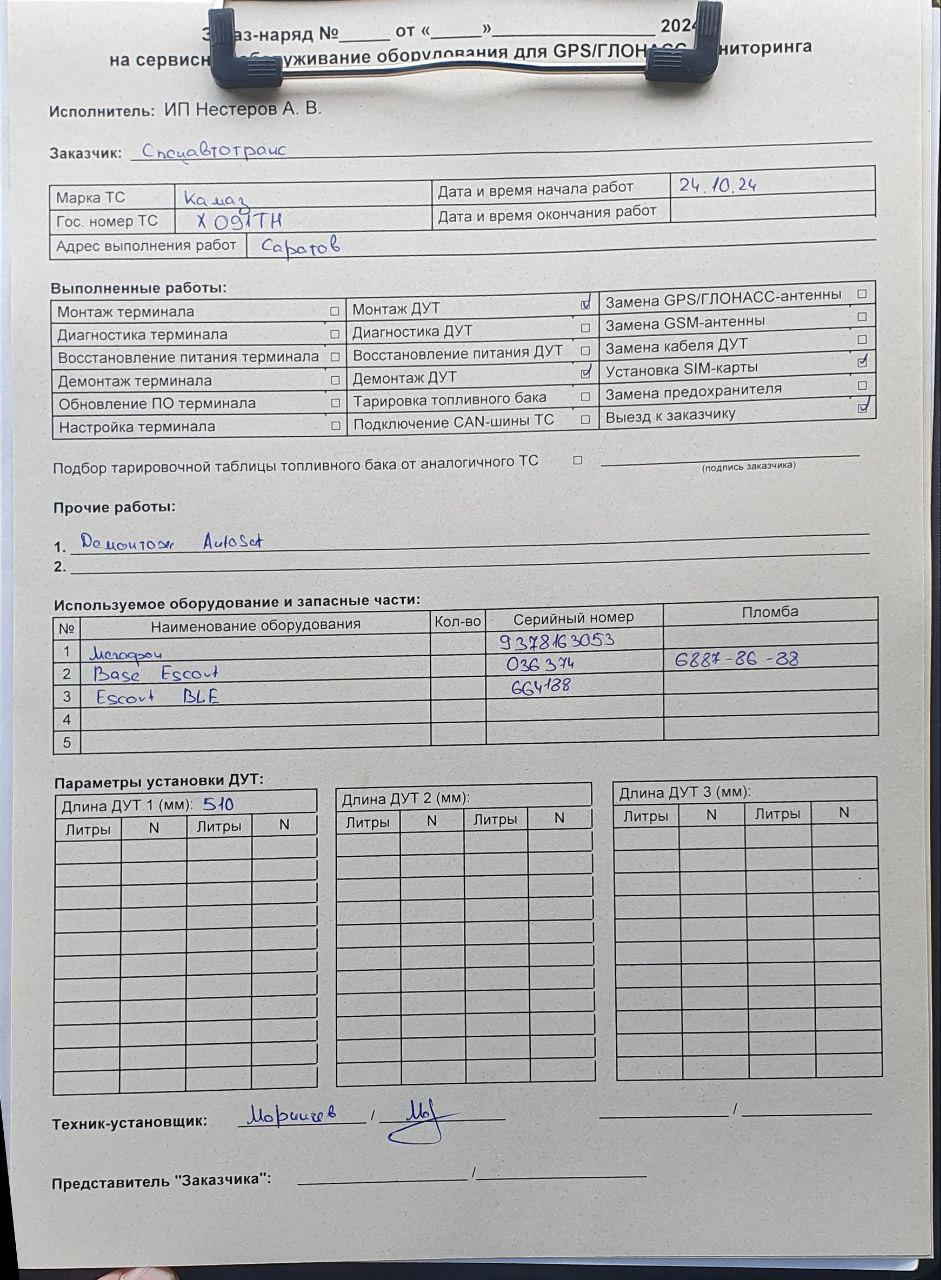 Заказ-наряд №_____ от «_____»________________ 2024
на сервисное обслуживание оборудования для GPS/ГЛОНАСС мониторинга
Исполнитель: ИП Нестеров А. В.
Заказчик: Спецавтотранс
Марка ТС Камаз Дата и время начала работ 24.10.24
Гос. номер ТС Х091ТН Дата и время окончания работ
Адрес выполнения работ Саратов
Выполненные работы:
Монтаж терминала ☐ Монтаж ДУТ ☑ Замена GPS/ГЛОНАСС-антенны ☐
Диагностика терминала ☐ Диагностика ДУТ ☐ Замена GSM-антенны ☐
Восстановление питания терминала ☐ Восстановление питания ДУТ ☐ Замена кабеля ДУТ ☐
Демонтаж терминала ☐ Демонтаж ДУТ ☑ Установка SIM-карты ☑
Обновление ПО терминала ☐ Тарировка топливного бака ☐ Замена предохранителя ☐
Настройка терминала ☐ Подключение CAN-шины ТС ☐ Выезд к заказчику ☑
Подбор тарировочной таблицы топливного бака от аналогичного ТС ☐
(подпись заказчика)
Прочие работы:
1. Демонтаж AutoSat
2.
Используемое оборудование и запасные части:
№ Наименование оборудования Кол-во Серийный номер Пломба
1 Мегафон 9378163053
2 Base Escort 036374 6887-86-88
3 Escort BLE 664188
4
5
Параметры установки ДУТ:
Длина ДУТ 1 (мм): 510 Длина ДУТ 2 (мм): Длина ДУТ 3 (мм):
Литры N Литры N Литры N Литры N Литры N Литры N
Техник-установщик: / /
Представитель "Заказчика": /